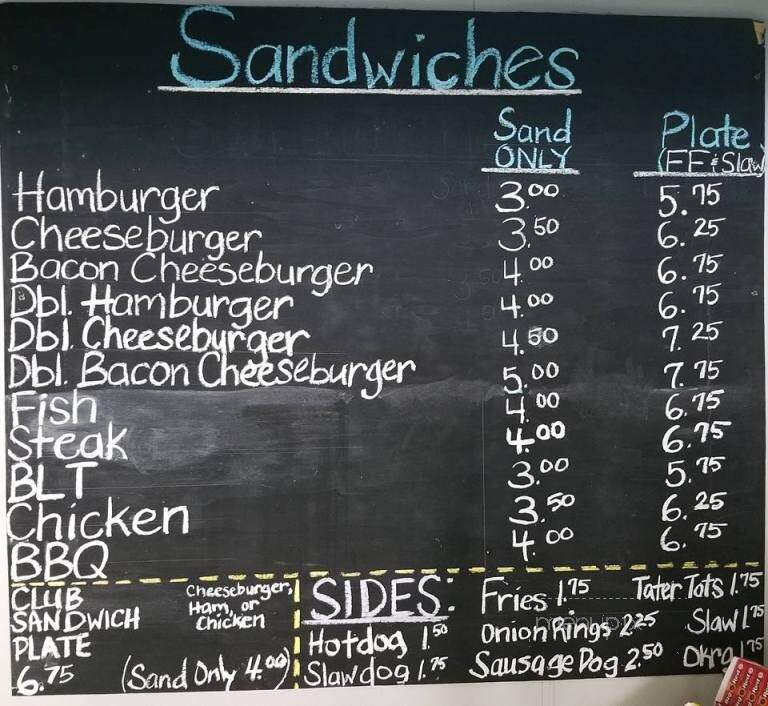 Sandwiches
Sand ONLY Plate (FF & Slaw)
Hamburger 3.00 5.75
Cheeseburger 3.50 6.25
Bacon Cheeseburger 4.00 6.75
Dbl. Hamburger 4.00 6.75
Dbl. Cheeseburger 4.50 7.25
Dbl. Bacon Cheeseburger 5.00 7.75
Fish 4.00 6.75
Steak 4.00 6.75
BLT 3.00 5.75
Chicken 3.50 6.25
BBQ 4.00 6.75
CLUB SANDWICH PLATE
Cheeseburger,
Ham, or
Chicken
6.75 (Sand Only 4.00)
SIDES: Fries 1.75 Tater Tots 1.75
Hotdog 1.50 Onion Rings 2.25 Slaw 1.75
Slawdog 1.75 Sausage Dog 2.50 Okra 1.75